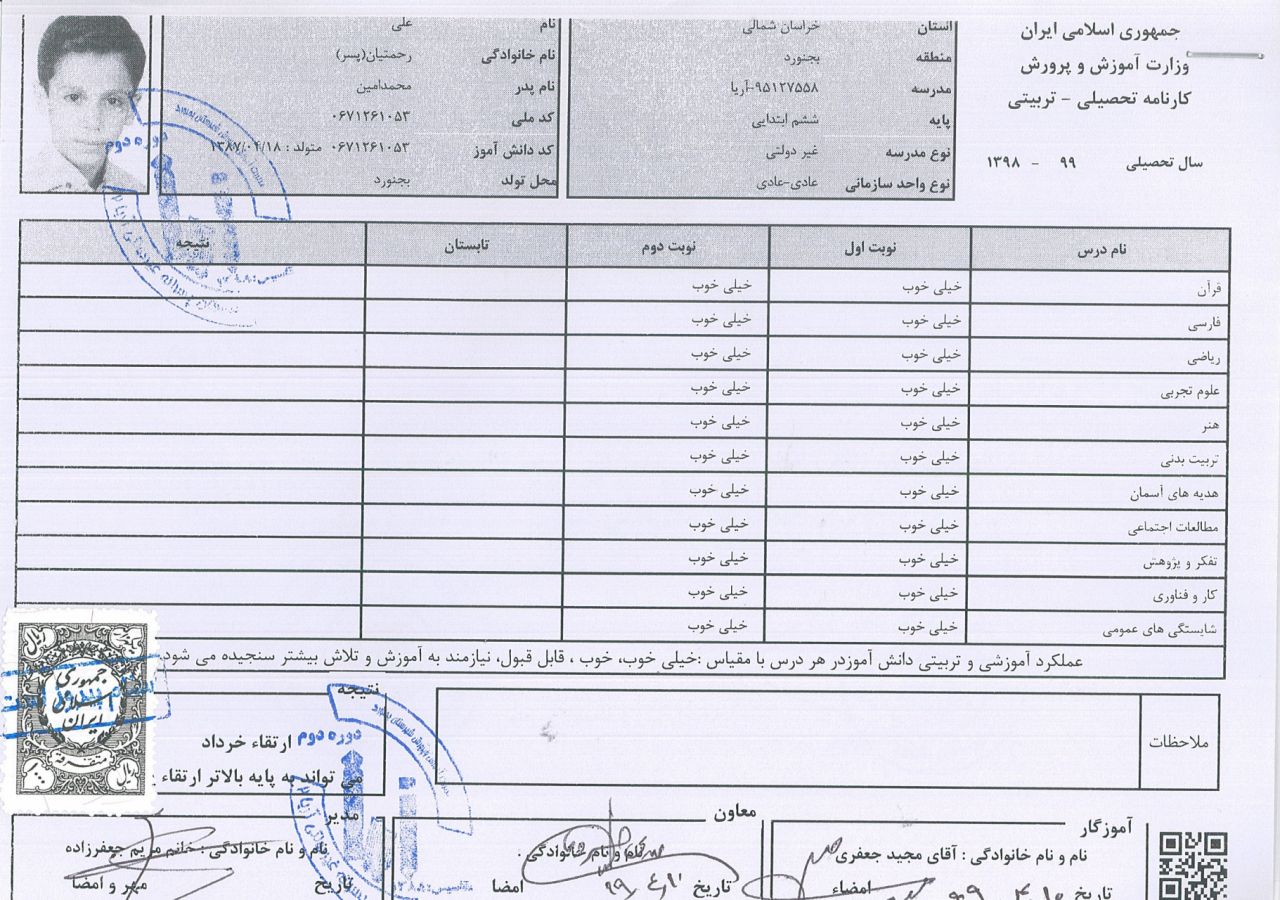 جمهوری اسلامی ایران
وزارت آموزش و پرورش
کارنامه تحصیلی - تربیتی
سال تحصیلی ۹۹ - ۱۳۹۸
استان خراسان شمالی
منطقه بجنورد
مدرسه ۹۵۱۲۷۵۵۸-آریا
پایه ششم ابتدایی
نوع مدرسه غیر دولتی
نوع واحد سازمانی عادی-عادی
نام علی
نام خانوادگی رحمتیان(پسر)
نام پدر محمدامین
کد ملی ۰۶۷۱۲۶۱۰۵۳
کد دانش آموز ۰۶۷۱۲۶۱۰۵۳ متولد : ۱۳۸۷/۰۴/۱۸
محل تولد بجنورد
نام درس نوبت اول نوبت دوم تابستان نتیجه
قرآن خیلی خوب خیلی خوب
فارسی خیلی خوب خیلی خوب
ریاضی خیلی خوب خیلی خوب
علوم تجربی خیلی خوب خیلی خوب
هنر خیلی خوب خیلی خوب
تربیت بدنی خیلی خوب خیلی خوب
هدیه های آسمان خیلی خوب خیلی خوب
مطالعات اجتماعی خیلی خوب خیلی خوب
تفکر و پژوهش خیلی خوب خیلی خوب
کار و فناوری خیلی خوب خیلی خوب
شایستگی های عمومی خیلی خوب خیلی خوب
عملکرد آموزشی و تربیتی دانش آموزدر هر درس با مقیاس :خیلی خوب، خوب ، قابل قبول، نیازمند به آموزش و تلاش بیشتر سنجیده می شود
ملاحظات
نتیجه
ارتقاء خرداد
می تواند به پایه بالاتر ارتقاء
دوره دوم
دوره دوم
جمهوری
اسلامی
ایران
متفرقه
ریال
ریال
۱۰۰۰
آموزگار
نام و نام خانوادگی : آقای مجید جعفری
تاریخ ۹۹ ۴ ۱۰ امضاء
معاون
نام و نام خانوادگی :
تاریخ امضا
مدیر
نام و نام خانوادگی : خانم مریم جعفرزاده
تاریخ مهر و امضا